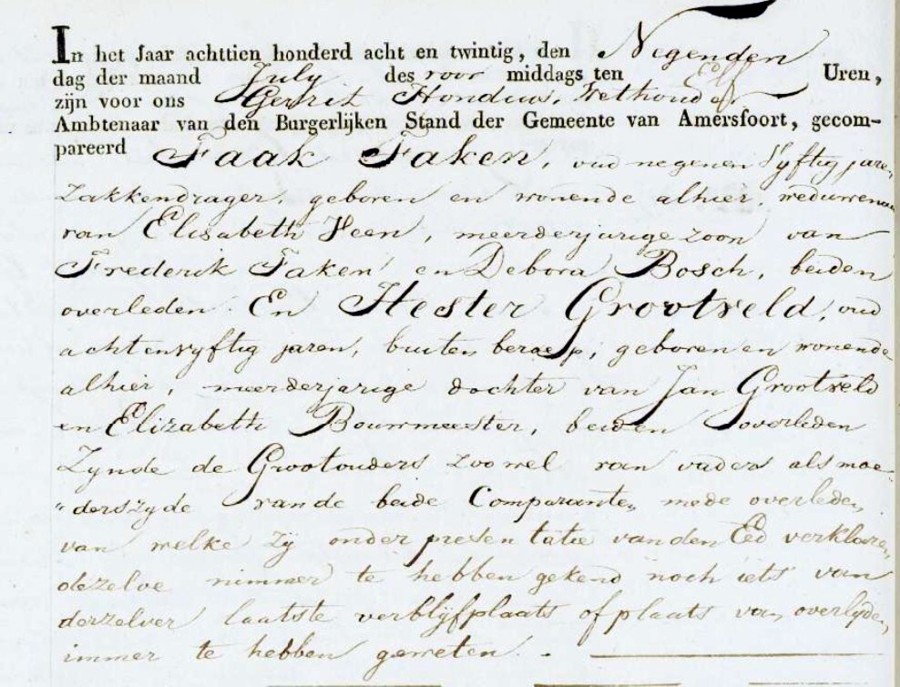 In het Jaar achttien honderd acht en twintig, den Negenden
dag der maand July des voor middags ten Elf Uren,
zijn voor ons Gerrit Hondius, Wethouder
Ambtenaar van den Burgerlijken Stand der Gemeente van Amersfoort, gecom-
pareerd Faak Faken, oud negenen Vyftig jaren,
Zakkendrager, geboren en wonende alhier, weduwenaar
van Elisabeth Veen, meerderjarige zoon van
Frederik Faken en Debora Bosch, beiden
overleden. En Hester Grootveld, oud
achtenvyftig jaren, buiten beroep, geboren en wonende
alhier, meerderjarige dochter van Jan Grootveld
en Elizabeth Bouwmeester, beiden overleden
Zynde de Grootouders zoowel van vaders als moe-
"derszyde van de beide Comparante, mede overleden,
van welke zy onder presentatie van den Eed verklaren,
dezelve nimmer te hebben gekend noch iets van
derzelver laatste verblyfplaats of plaats van overlyden,
immer te hebben geweten. -